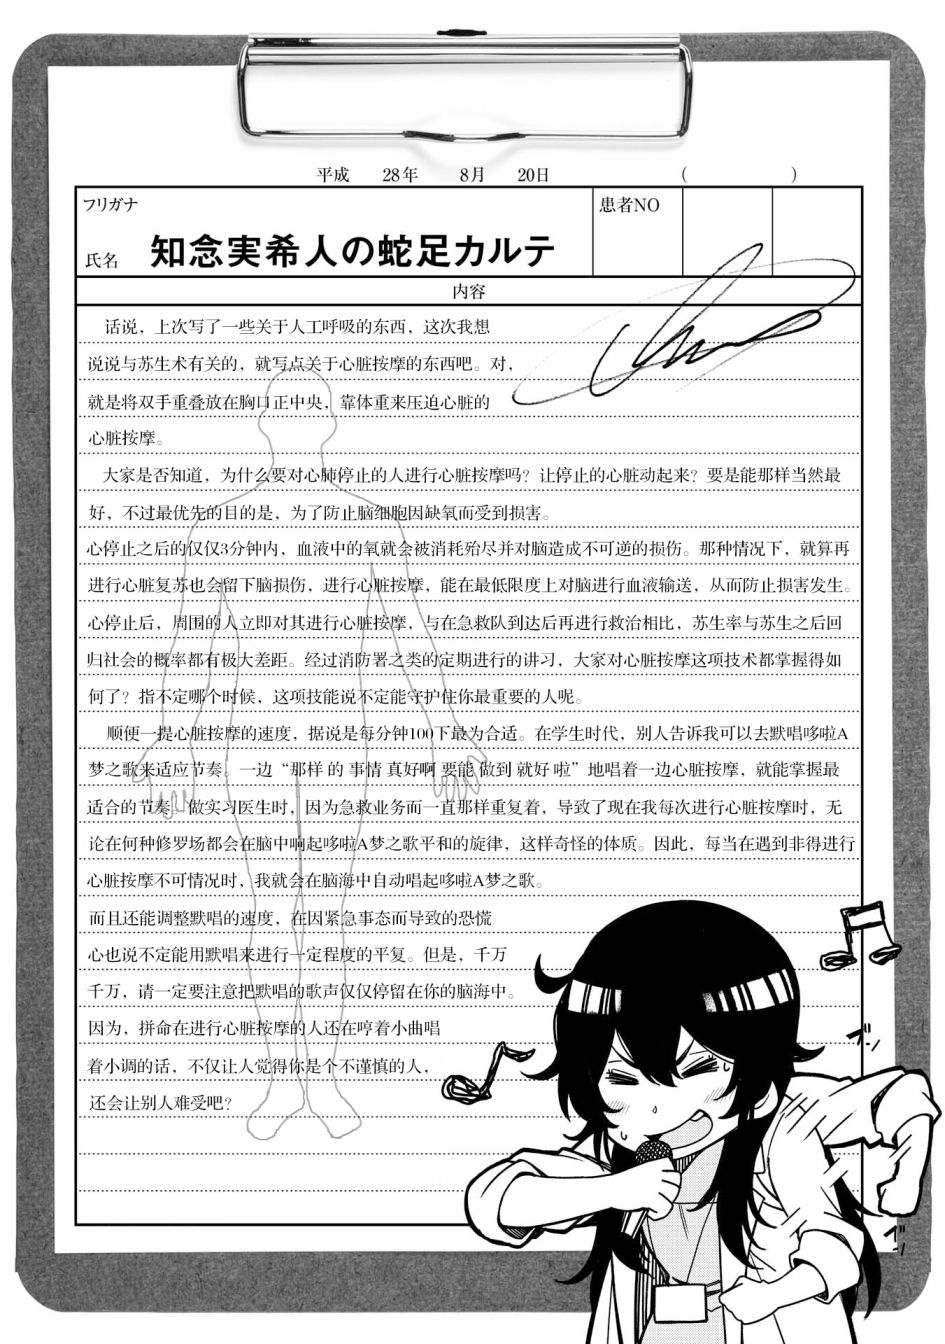 平成 28年 8月 20日 ( )
フリガナ
患者NO
氏名 知念実希人の蛇足カルテ
内容
话说，上次写了一些关于人工呼吸的东西，这次我想
说说与苏生术有关的，就写点关于心脏按摩的东西吧。对，
就是将双手重叠放在胸口正中央，靠体重来压迫心脏的
心脏按摩。
大家是否知道，为什么要对心肺停止的人进行心脏按摩吗？让停止的心脏动起来？要是能那样当然最
好，不过最优先的目的是，为了防止脑细胞因缺氧而受到损害。
心停止之后的仅仅3分钟内，血液中的氧就会被消耗殆尽并对脑造成不可逆的损伤。那种情况下，就算再
进行心脏复苏也会留下脑损伤，进行心脏按摩，能在最低限度上对脑进行血液输送，从而防止损害发生。
心停止后，周围的人立即对其进行心脏按摩，与在急救队到达后再进行救治相比，苏生率与苏生之后回
归社会的概率都有极大差距。经过消防署之类的定期进行的讲习，大家对心脏按摩这项技术都掌握得如
何了？指不定哪个时候，这项技能说不定能守护住你最重要的人呢。
顺便一提心脏按摩的速度，据说是每分钟100下最为合适。在学生时代，别人告诉我可以去默唱哆啦A
梦之歌来适应节奏。一边“那样 的 事情 真好啊 要能 做到 就好 啦”地唱着一边心脏按摩，就能掌握最
适合的节奏。做实习医生时，因为急救业务而一直那样重复着，导致了现在我每次进行心脏按摩时，无
论在何种修罗场都会在脑中响起哆啦A梦之歌平和的旋律，这样奇怪的体质。因此，每当在遇到非得进行
心脏按摩不可情况时，我就会在脑海中自动唱起哆啦A梦之歌。
而且还能调整默唱的速度，在因紧急事态而导致的恐慌
心也说不定能用默唱来进行一定程度的平复。但是，千万
千万，请一定要注意把默唱的歌声仅仅停留在你的脑海中。
因为，拼命在进行心脏按摩的人还在哼着小曲唱
着小调的话，不仅让人觉得你是个不谨慎的人，
还会让别人难受吧？